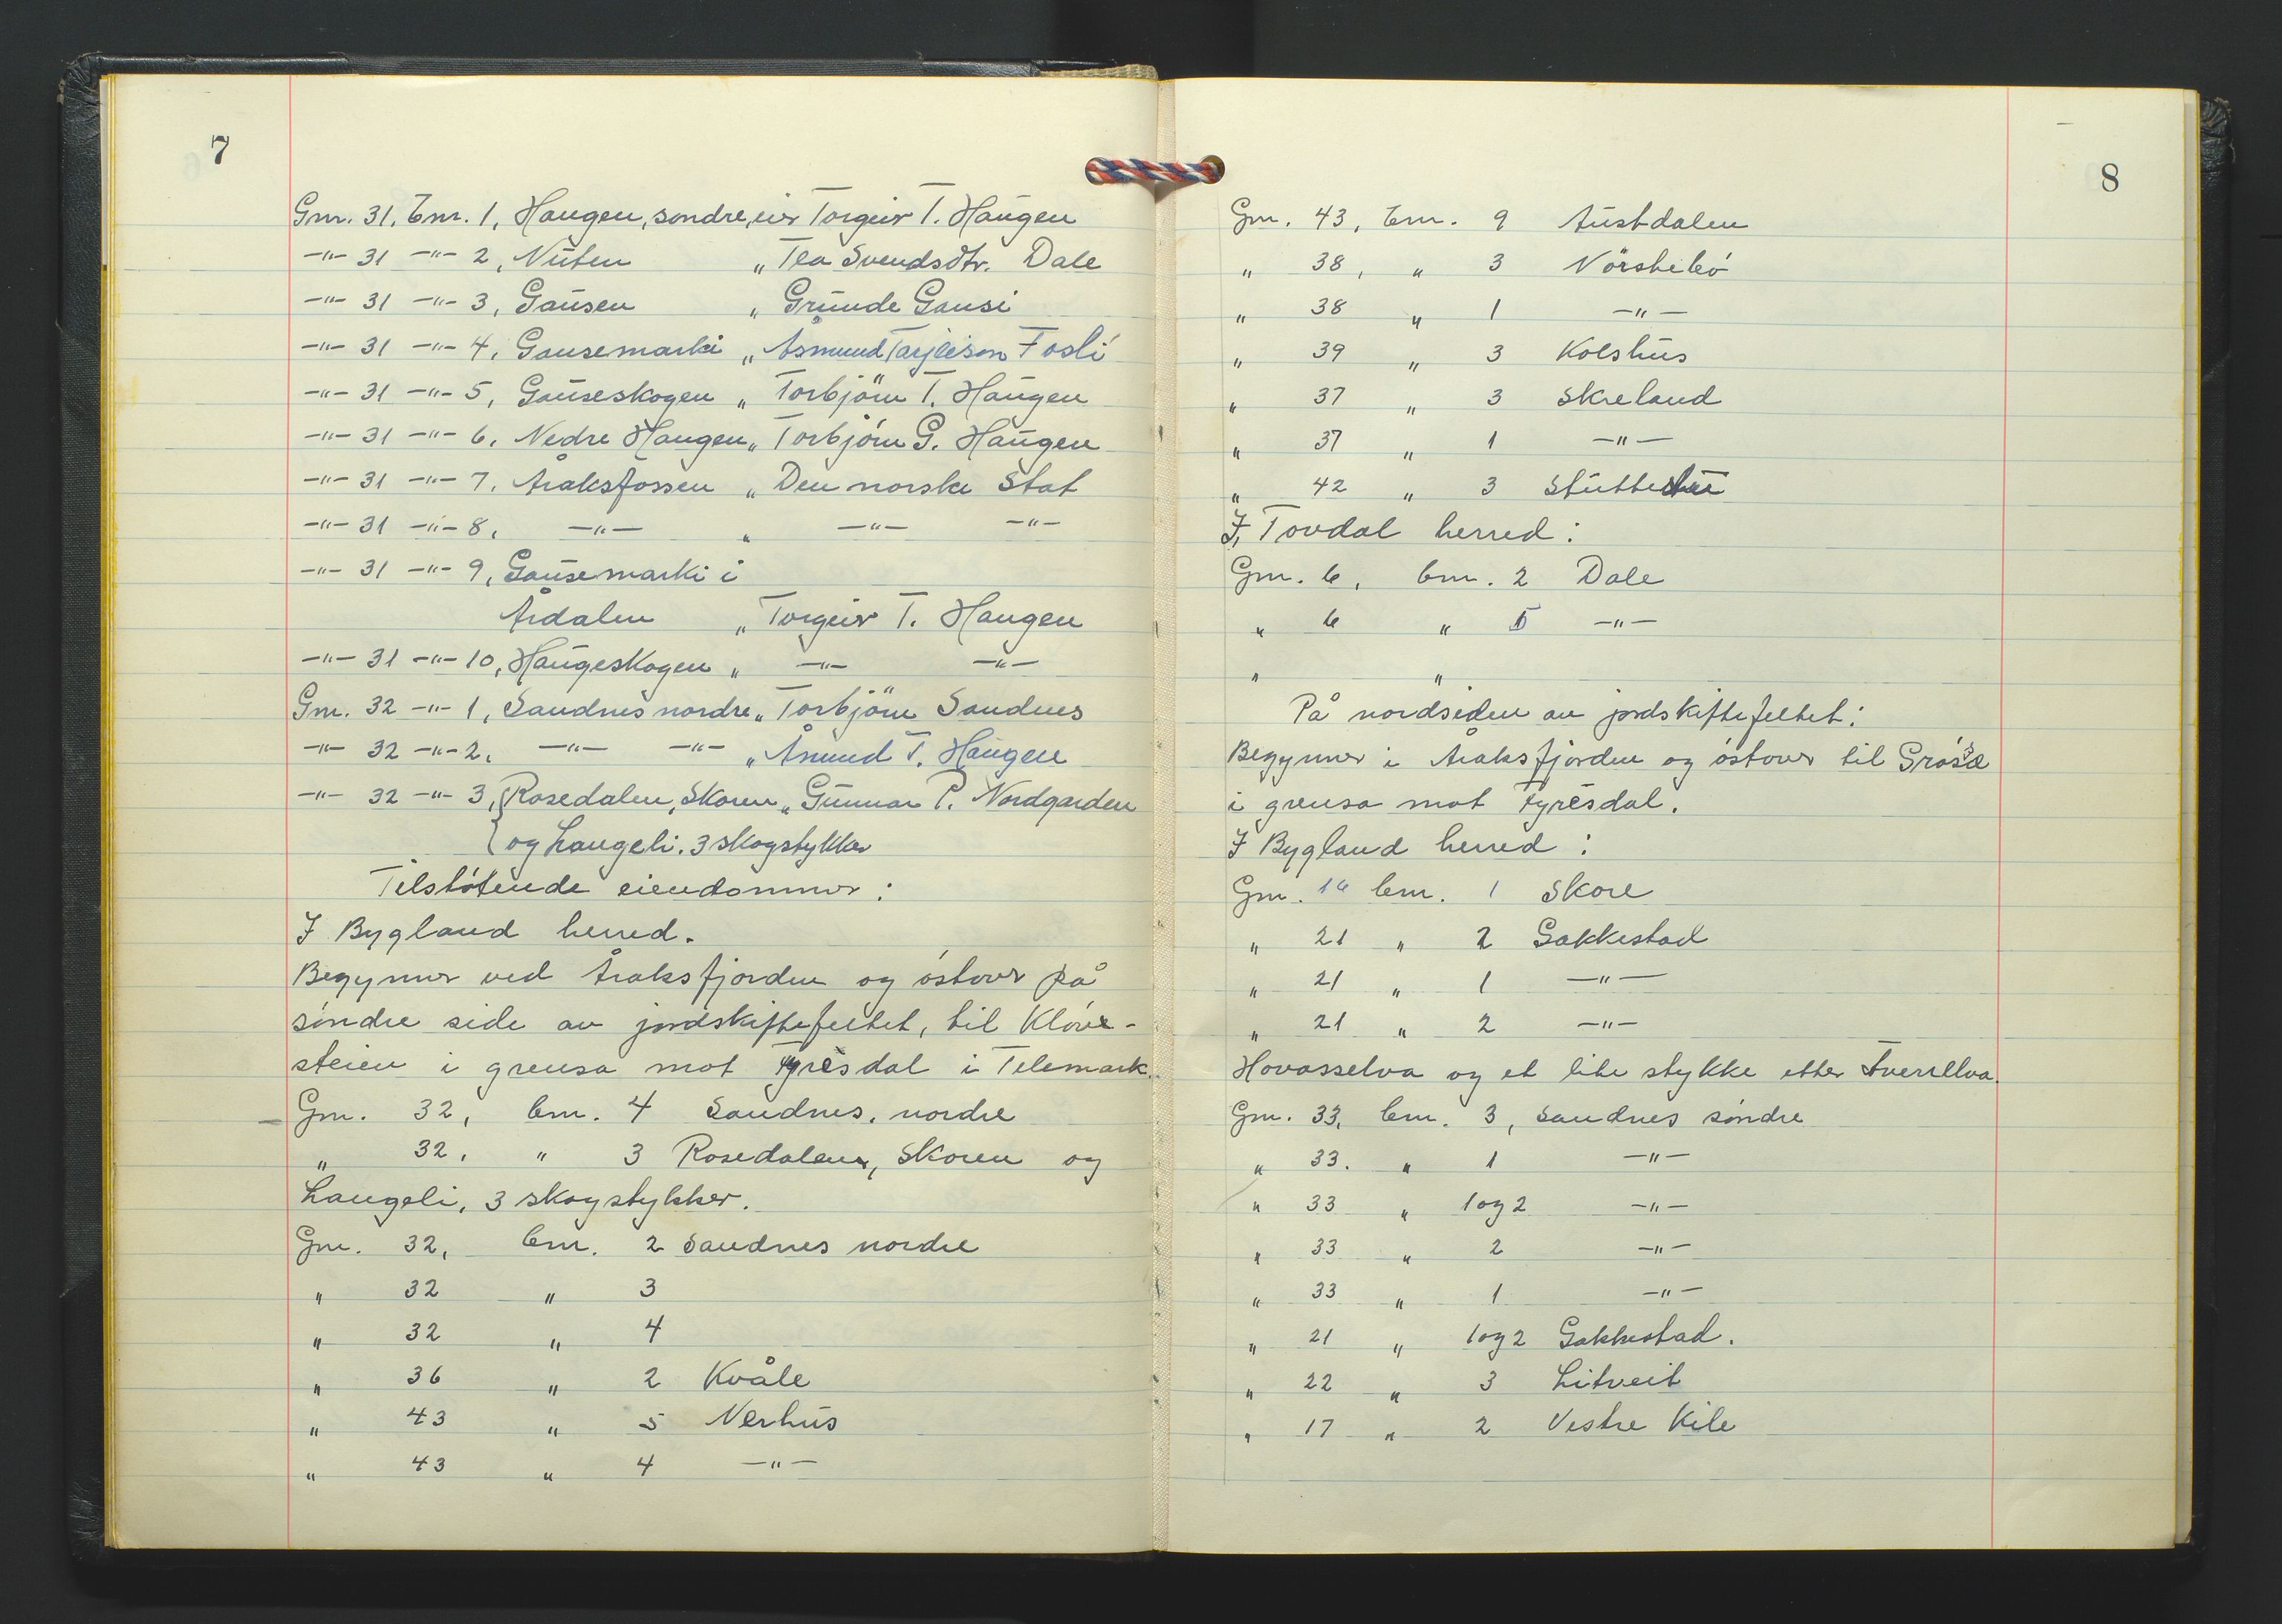 7
Gnr. 31, bnr. 1, Haugen, søndre, eier Torgeir T. Haugen
-"- 31 -"- 2, Nuten „ Tea Svendsdtr. Dale
-"- 31 -"- 3, Gausen „ Grunde Gausi
-"- 31 -"- 4, Gausemarki „ Åsmund Tarjeison Fosli
-"- 31 -"- 5, Gauseskogen „ Torbjörn T. Haugen
-"- 31 -"- 6, Nedre Haugen „ Torbjörn G. Haugen
-"- 31 -"- 7, Åraksfossen „ Den norske Stat
-"- 31 -"- 8, -"- „ -"- -"-
-"- 31 -"- 9, Gausemarki i
Årdalen „ Torgeir T. Haugen
-"- 31 -"- 10, Haugeskogen „ -"- -"-
Gnr. 32 -"- 1, Sandnes nordre „ Torbjörn Sandnes
-"- 32 -"- 2, -"- -"- „ Åmund T. Haugen
-"- 32 -"- 3, { Rosedalen, Skoren „ Gunnar P. Nordgarden
{ og Langeli. 3 skogstykker
Tilstøtende eiendommer :
I Bygland herred.
Begynner ved Åraksfjorden og østover på
søndre side av jordskiftefeltet, til Kløve-
steien i grensa mot Fyresdal i Telemark.
Gnr. 32, bnr. 4 Sandnes, nordre
„ 32, " 3 Rosedalen, Skoren og
Langeli, 3 skogstykker.
Gnr. 32, bnr. 2 Sandnes nordre
" 32 " 3
" 32 " 4
" 36 " 2 Kvåle
" 43 " 5 Nerhus
" 43 " 4 -"-
8
Gnr. 43, bnr. 9 Austdalen
" 38, " 3 Nörstebö
" 38 " 1 -"-
" 39 " 3 Kolshus
" 37 " 3 Skreland
" 37 " 1 -"-
" 42 " 3
I, Tovdal herred :
Gnr. 6, bnr. 2 Dale
" 6 " 5 -"-
" "
På nordsiden av jordskiftefeltet :
Begynner i Åraksfjorden og østover til Grøsæ
i grensa mot Fyresdal.
I Bygland herred :
Gnr. 16 bnr. 1 Skore
" 21 " 2 Gakkestad
" 21 " 1 -"-
" 21 " 2 -"-
Hovasselva og et lite stykke etter tverrelva.
Gnr. 33, bnr. 3, Sandnes søndre
" 33. " 1 -"-
" 33 " 1 og 2 -"-
" 33 " 2 -"-
" 33 " 1 -"-
" 21 " 1 og 2 Gakkestad.
" 22 " 3 Litveit
" 17 " 2 Vestre Kile